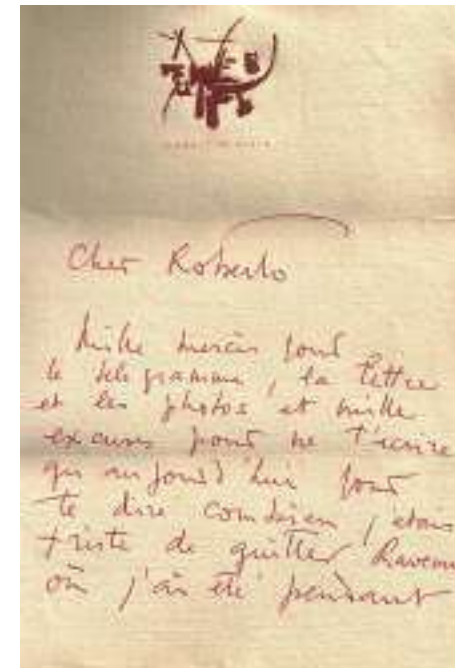 Cher Roberto
Mille mercis pour
le telegramme, la lettre
et les photos et mille
excuses pour ne t'ecrire
qu'aujourd'hui pour
te dire combien j'etais
triste de quitter Ravenne
où j'ai été pendant